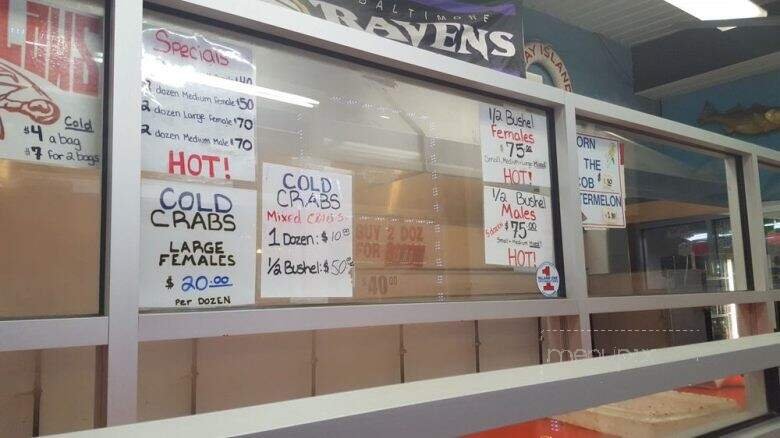 BALTIMORE
RAVENS
AY ISLAND
Cold
$4 a bag
$7 for 2 bags
Specials
dozen Medium Female $50
2 dozen Large Female $70
2 dozen Medium Male $70
HOT!
COLD
CRABS
LARGE
FEMALES
$20.00
PER DOZEN
COLD
CRABS
Mixed CRABS
1 Dozen: $10.00
1/2 Bushel: $50.00
BUY 2 DOZ
FOR
$40.00
1/2 Bushel
Females
$75.00
Small, Medium, Large Mixed
HOT!
1/2 Bushel
Males
5 dozen $75.00
Small - Medium
HOT!
1
ORN
THE
COB
TERMELON
menupix